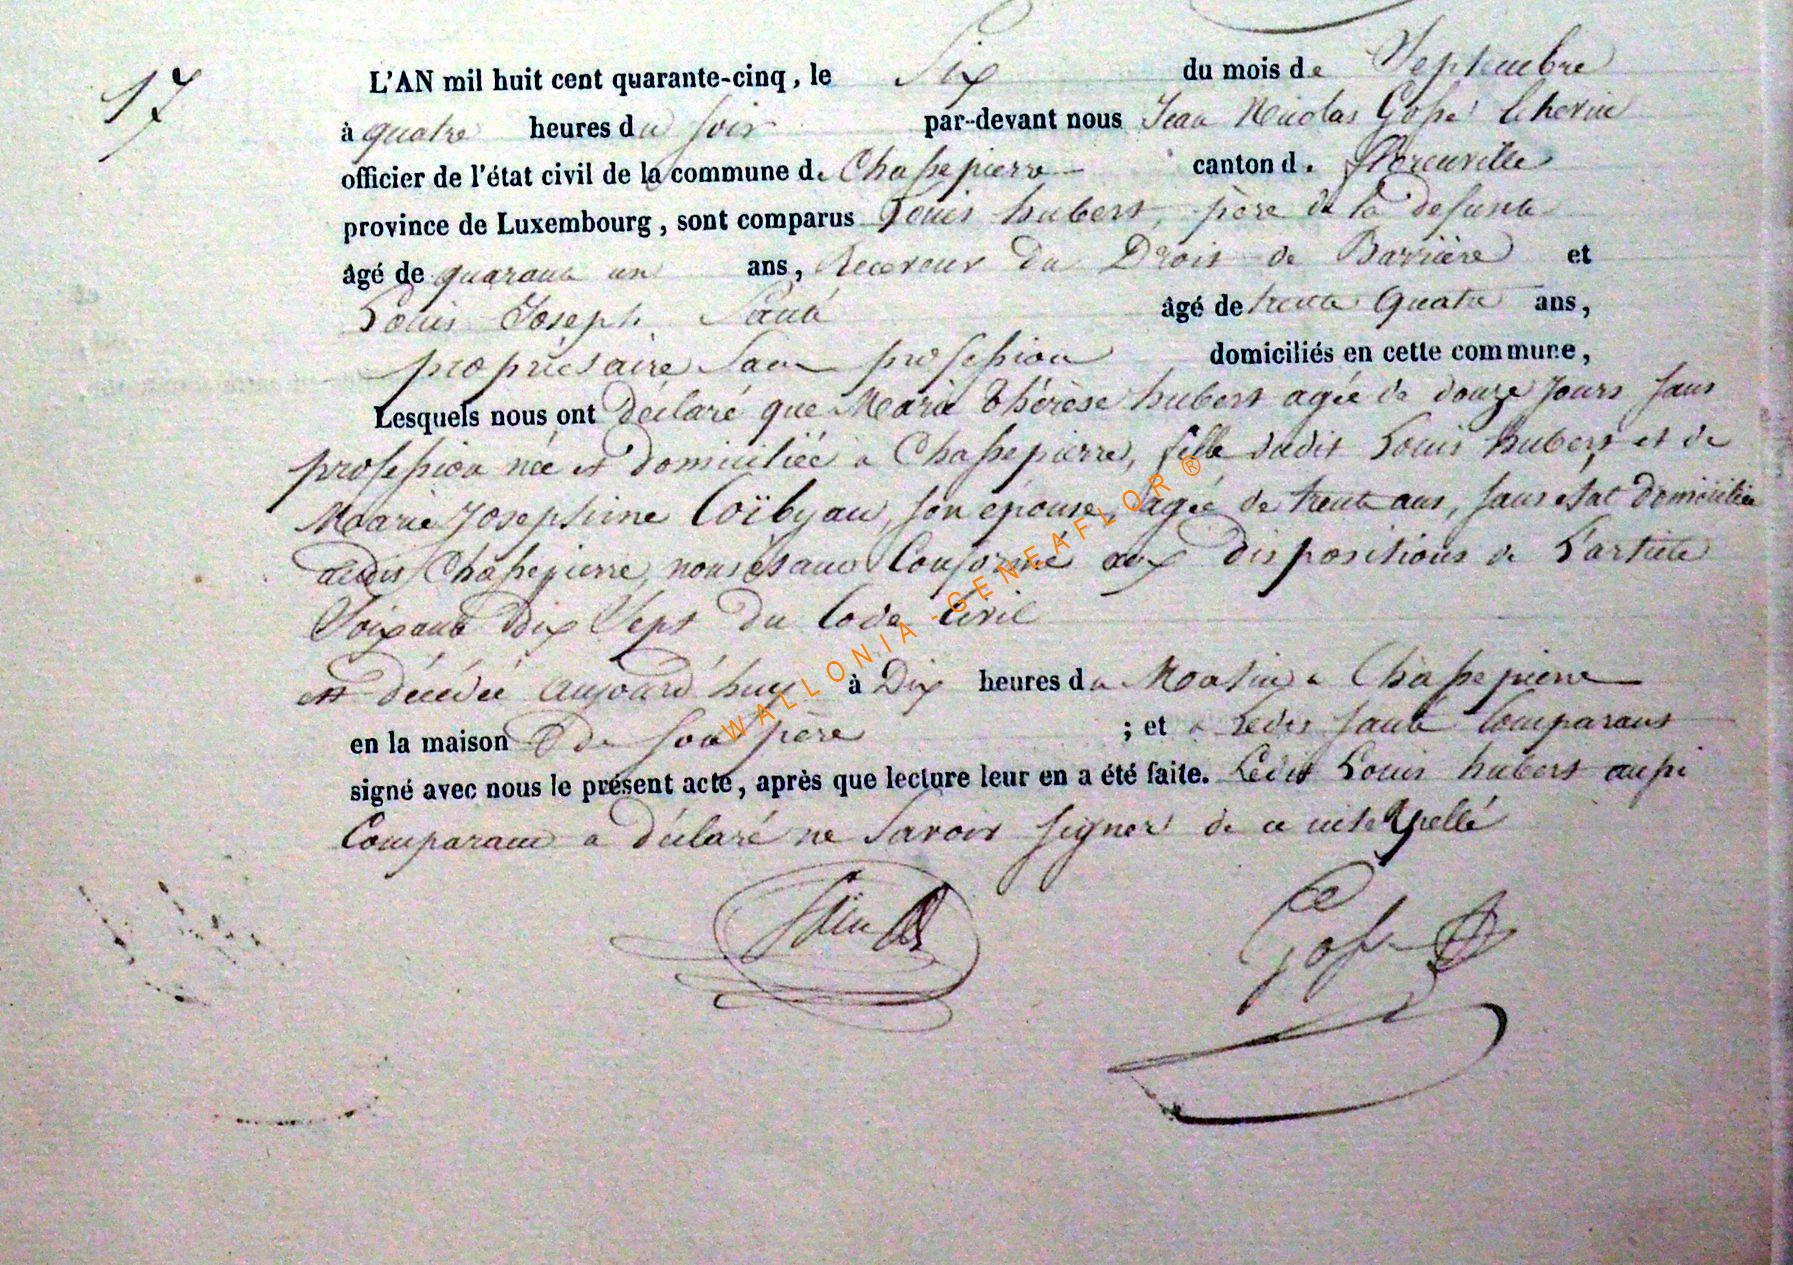 17
L'AN mil huit cent quarante-cinq, le Six du mois de Septembre
à quatre heures du soir par-devant nous Jean Nicolas Gosse Echevin
officier de l'état civil de la commune de Chassepierre canton de Florenville
province de Luxembourg, sont comparus Louis hubert, père de la defunte
âgé de quarante un ans, Receveur du Droit de Barrière et
Louis Joseph âgé de trente quatre ans,
propriétaire sans profession domiciliés en cette commune,
Lesquels nous ont déclaré que Marie Thérèse hubert agée de douze jours sans
profession née et domiciliée a Chassepierre, fille dudit Louis hubert et de
Marie Josephine son épouse, agée de trente ans, sans etat domiciliée
audit Chassepierre, nous étant Conformé aux dispositions de L'article
Soixante Dix Sept du Code Civil
est décédée aujourd'huy à Dix heures du Matin a Chassepierre
en la maison de son père ; et a Ledit Comparant
signé avec nous le présent acte, après que lecture leur en a été faite. Ledit Louis hubert aussi
Comparant a déclaré ne Savoir signer de ce interpellé
Gosse
WALLONIA - GENEAFLOR ®